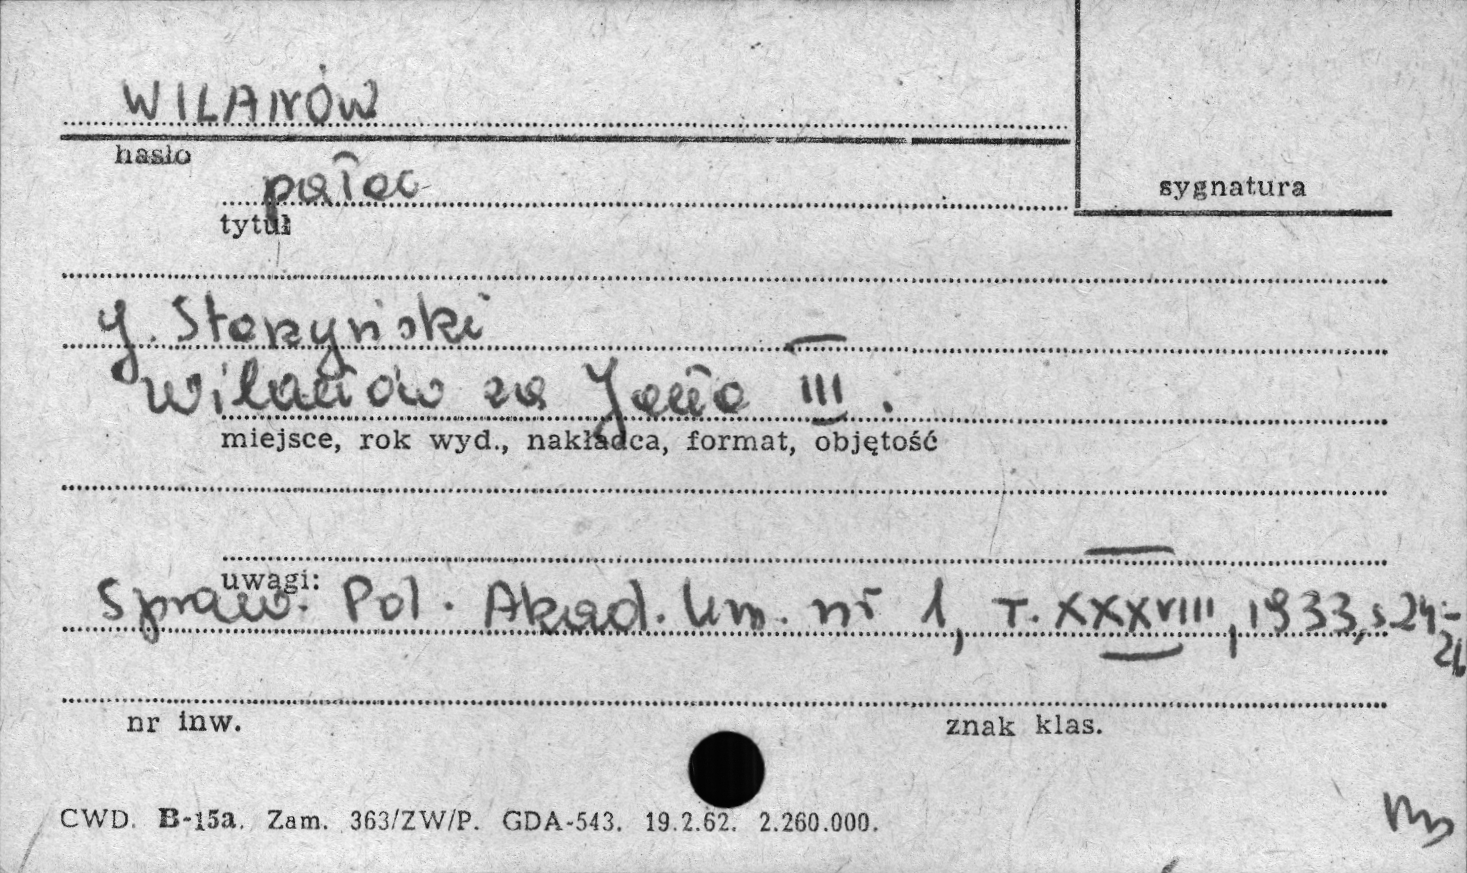 WILANÓW
hasło
pałac
sygnatura
tytuł
J. Starzyński
Wilanów za Jana III.
miejsce, rok wyd., nakładca, format, objętość
uwagi:
Spraw. Pol. Akad. Um. nr 1, T. XXXVIII, 1933, s. 24-
26
nr inw.
znak klas.
CWD. B-15a. Zam. 363/ZW/P. GDA-543. 19.2.62. 2.260.000.